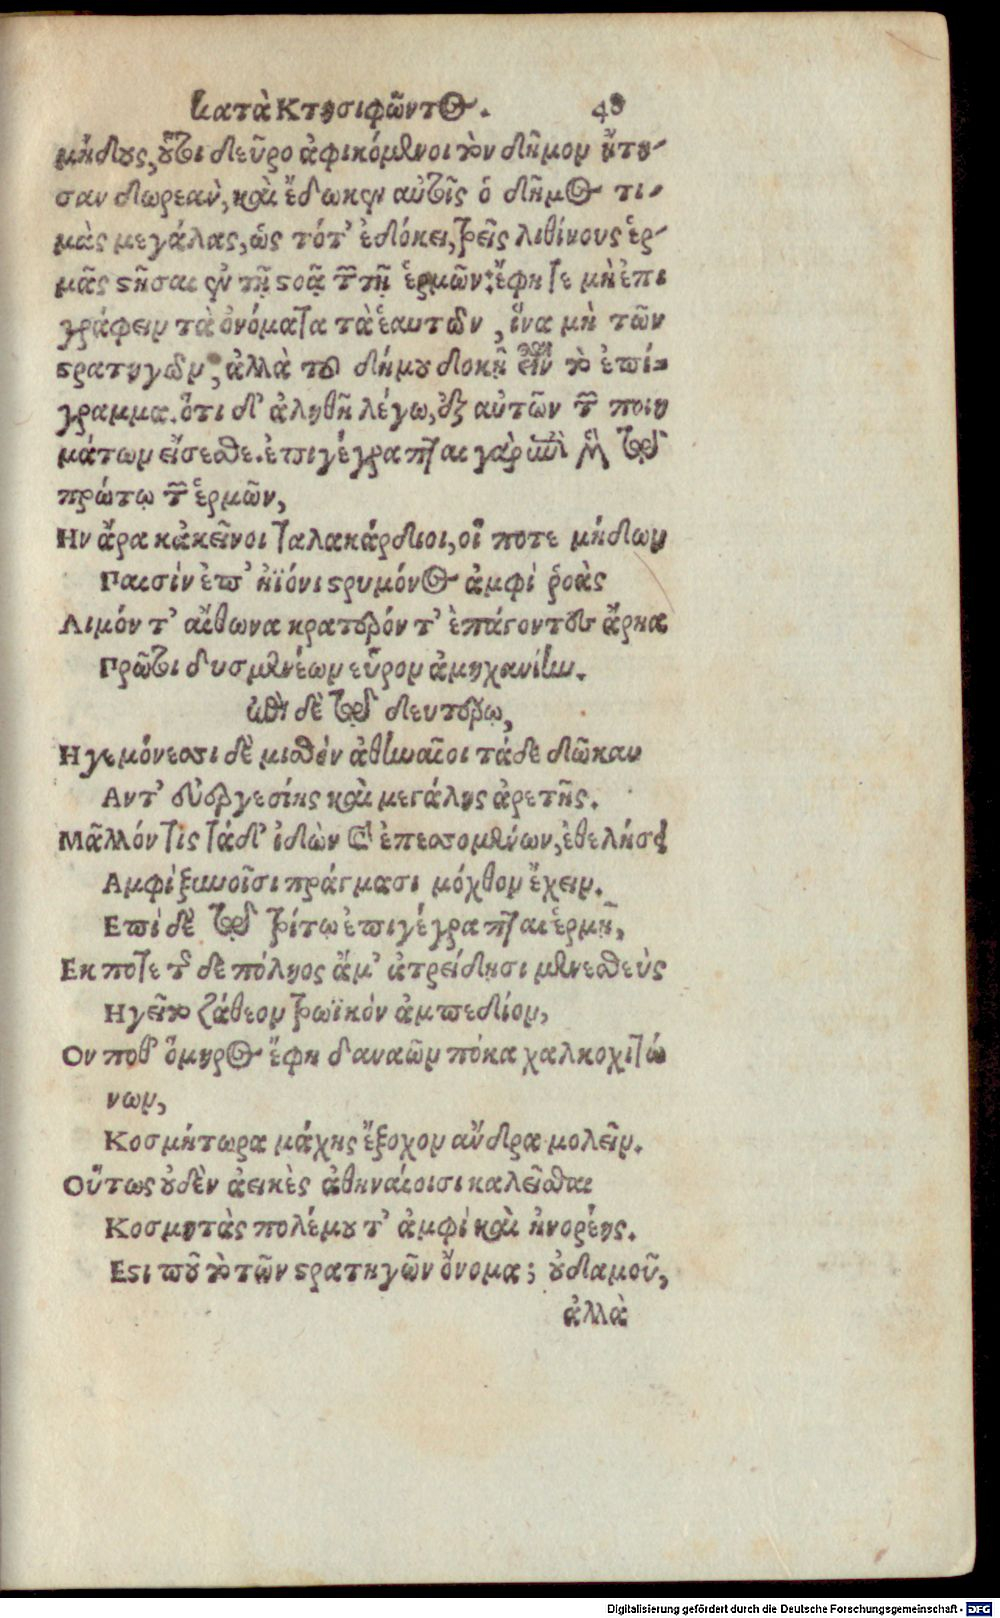 κατὰ Κτησιφῶντος. 48
μήδους, οὗτοι δεῦρο ἀφικόμενοι τὸν δῆμον ᾔτη-
σαν δωρεὰν, καὶ ἔδωκεν αὐτοῖς ὁ δῆμος τι-
μὰς μεγάλας, ὡς τότ' ἐδόκει, τρεῖς λιθίνους ἑρ-
μᾶς στῆσαι ἐν τῇ στοᾷ τῇ τῶν ἑρμῶν: ἔφη τε μὴ ἐπι
γράφειν τὰ ὀνόματα τὰ ἑαυτῶν, ἵνα μὴ τῶν
στρατηγῶν, ἀλλὰ τοῦ δήμου δοκῇ εἶναι τὸ ἐπί-
γραμμα. ὅτι δ' ἀληθῆ λέγω, ἐξ αὐτῶν τῶν ποιη
μάτων εἴσεσθε. ἐπιγέγραπται γὰρ ἐπὶ μὲν τῷ
πρώτῳ τῶν ἑρμῶν,
Ην ἄρα κἀκεῖνοι ταλακάρδιοι, οἵ ποτε μήδων
Παισίν ἐπ' ἠϊόνι στρυμόνος ἀμφὶ ῥοὰς
Λιμόν τ' αἴθωνα κρατερόν τ' ἐπάγοντες ἄρηα
Πρῶτοι δυσμενέων εὗρον ἀμηχανίην.
ἐπὶ δὲ τῷ δευτέρῳ,
Ηγεμόνεσσι δὲ μισθὸν ἀθηναῖοι τάδε δῶκαν
Αντ' εὐεργεσίης καὶ μεγάλης ἀρετῆς.
Μᾶλλόν τις τάδ' ἰδὼν καὶ ἐπεσσομένων, ἐθελήσει
Αμφὶ ξυνοῖσι πράγμασι μόχθον ἔχειν.
Επὶ δὲ τῷ τρίτῳ ἐπιγέγραπται ἑρμῇ,
Εκ ποτε τῆς δε πόληος ἅμ' ἀτρείδῃσι μενεσθεὺς
Ηγεῖτο ζάθεον τρωϊκὸν ἀμ πεδίον,
Ον ποθ' ὅμηρος ἔφη δαναῶν πύκα χαλκοχιτώ
νων,
Κοσμήτωρα μάχης ἔξοχον ἄνδρα μολεῖν.
Οὕτως οὐδὲν ἀεικὲς ἀθηναίοισι καλεῖσθαι
Κοσμητὰς πολέμου τ' ἀμφὶ καὶ ἠνορέης.
Εστι που τὸ τῶν στρατηγῶν ὄνομα; οὐδαμοῦ,
ἀλλὰ
Digitalisierung gefördert durch die Deutsche Forschungsgemeinschaft - DFG